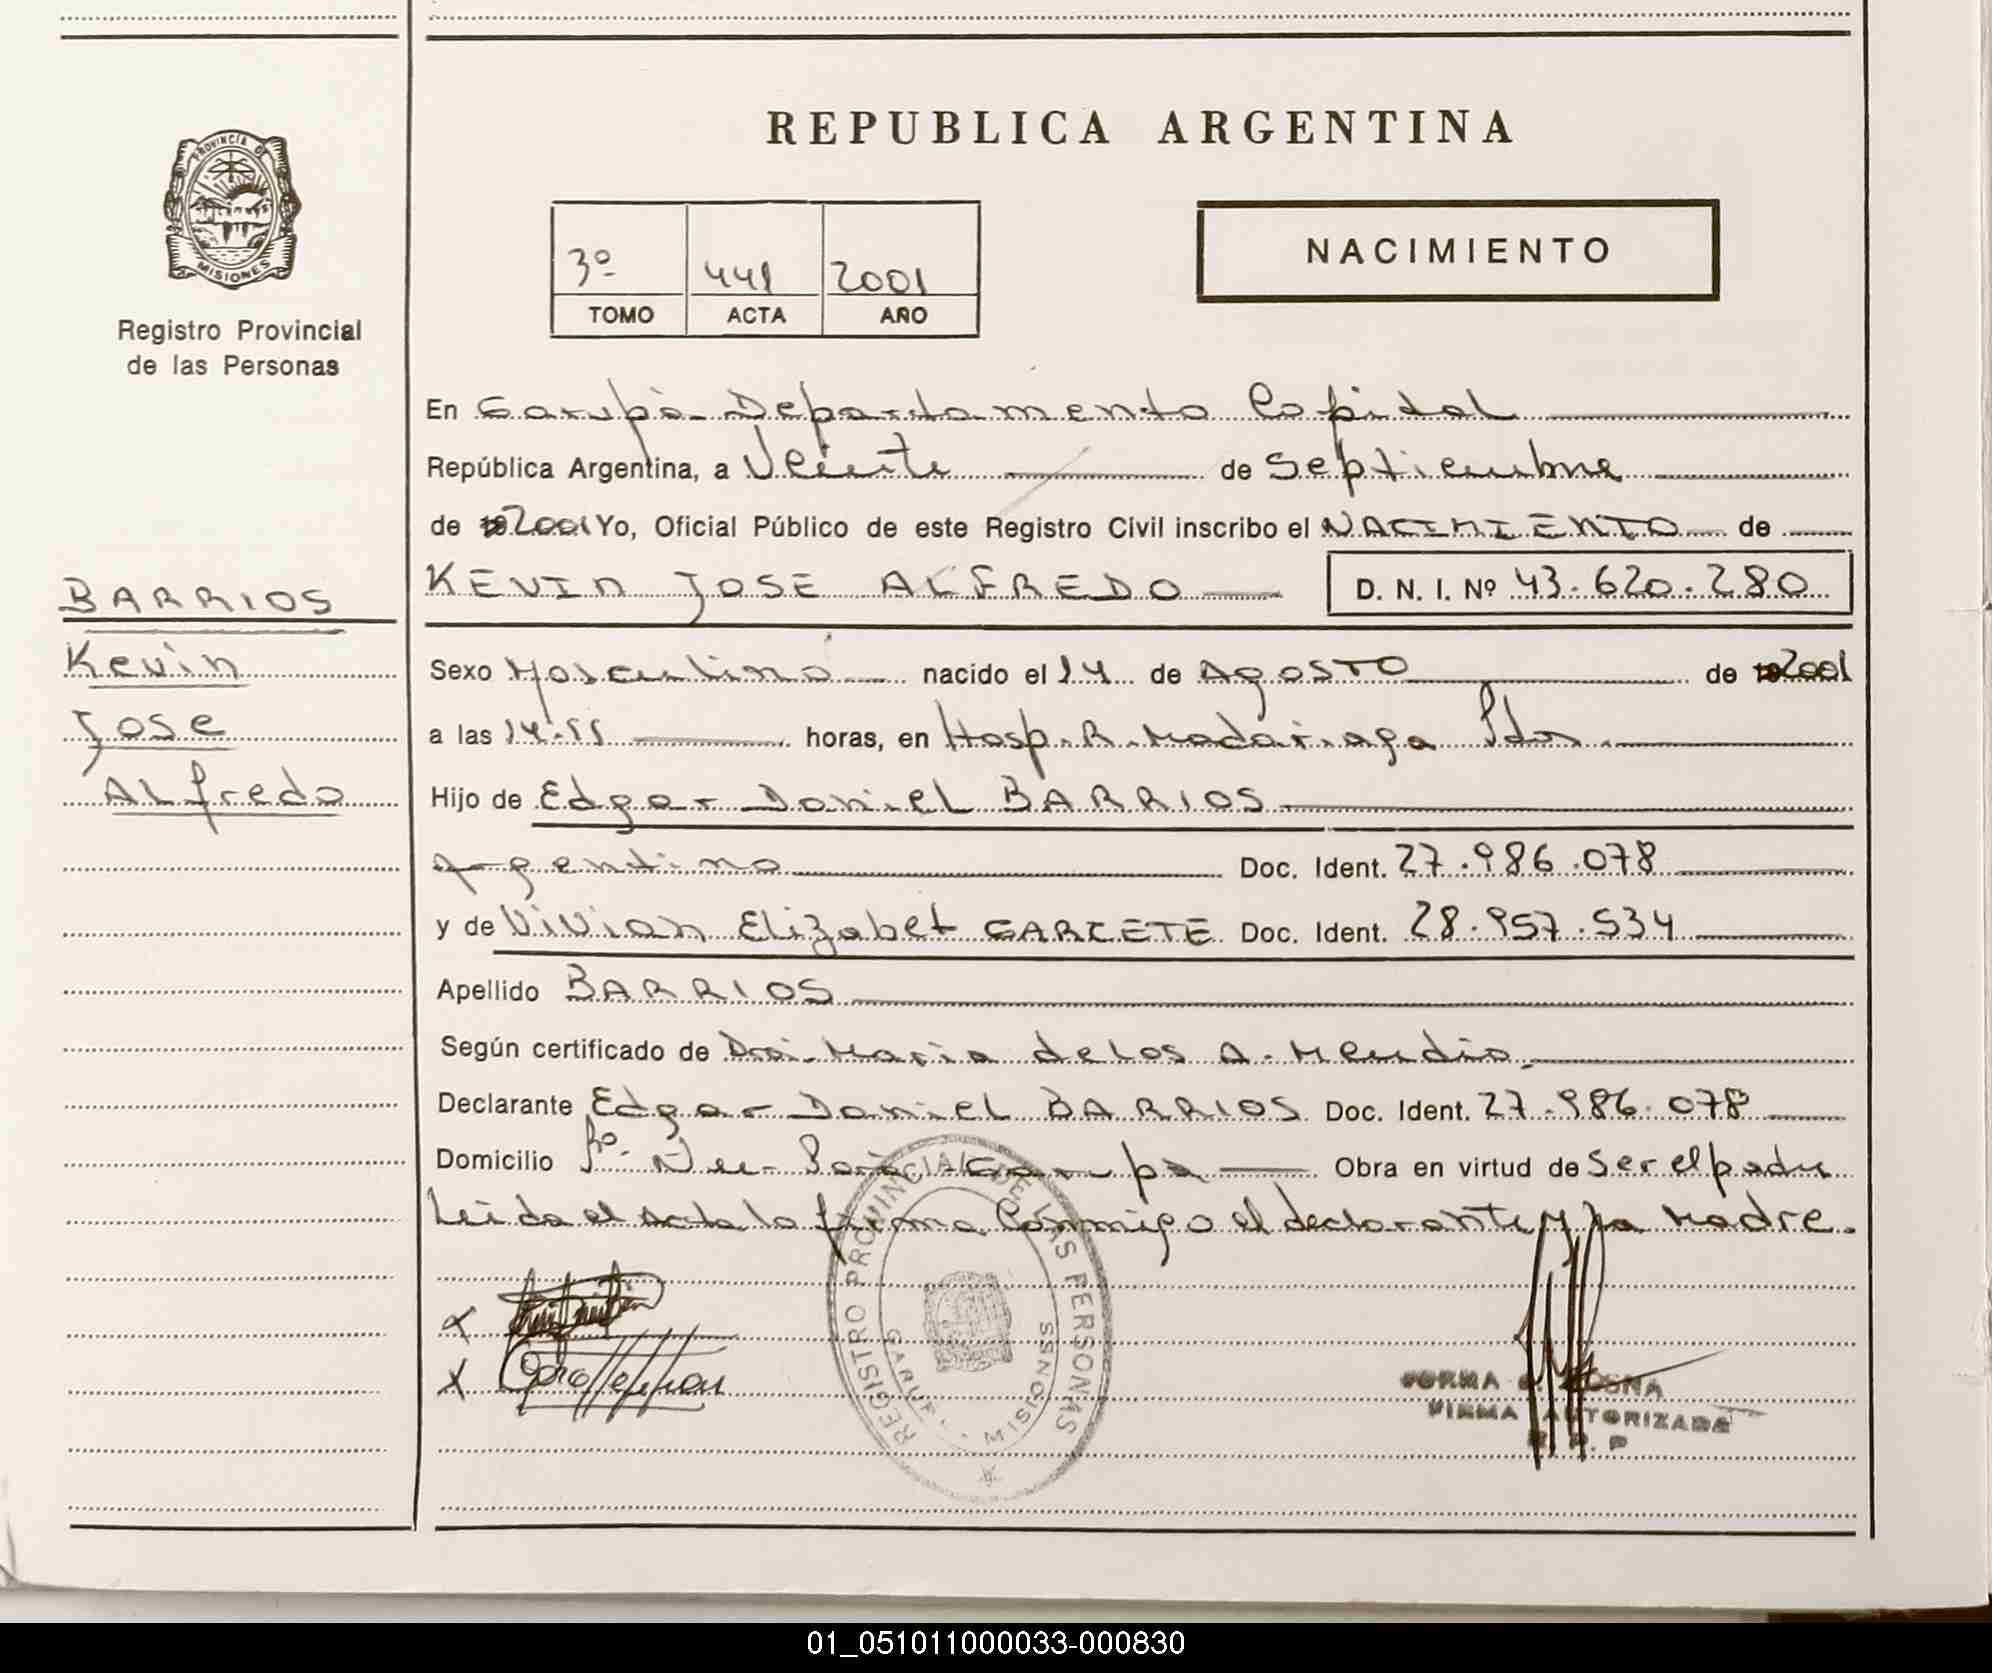 REPUBLICA ARGENTINA
PROVINCIA DE
MISIONES
Registro Provincial
de las Personas
3º 441 2001
TOMO ACTA AÑO
NACIMIENTO
En Garupà- Departamento Capital
República Argentina, a Veinte de Septiembre
de 2001 Yo, Oficial Público de este Registro Civil inscribo el NACIMIENTO de
BARRIOS
Kevin
Jose
ALfredo
KEVIN JOSE ALFREDO D. N. I. Nº 43.620.280
Sexo Masculino nacido el 14 de AgOSTO de 2001
a las 14.55 horas, en Hosp. R. Madariaga Pdas.
Hijo de Edgar DaniEL BARRIOS
Argentino Doc. Ident. 27.986.078
y de Vivian Elizabet GARCETE Doc. Ident. 28.957.534
Apellido BARRIOS
Según certificado de Dra. Maria de Los A.
Declarante Edgar DaniEL BARRIOS Doc. Ident. 27.986.078
Domicilio Garupa Obra en virtud de Ser el padre
Leida el Acta la firma Conmigo el declarante y la Madre.
REGISTRO PROVINCIAL DE LAS PERSONAS
GARUPA - MISIONES
FIRMA AUTORIZADA
R. P. P
01_051011000033-000830